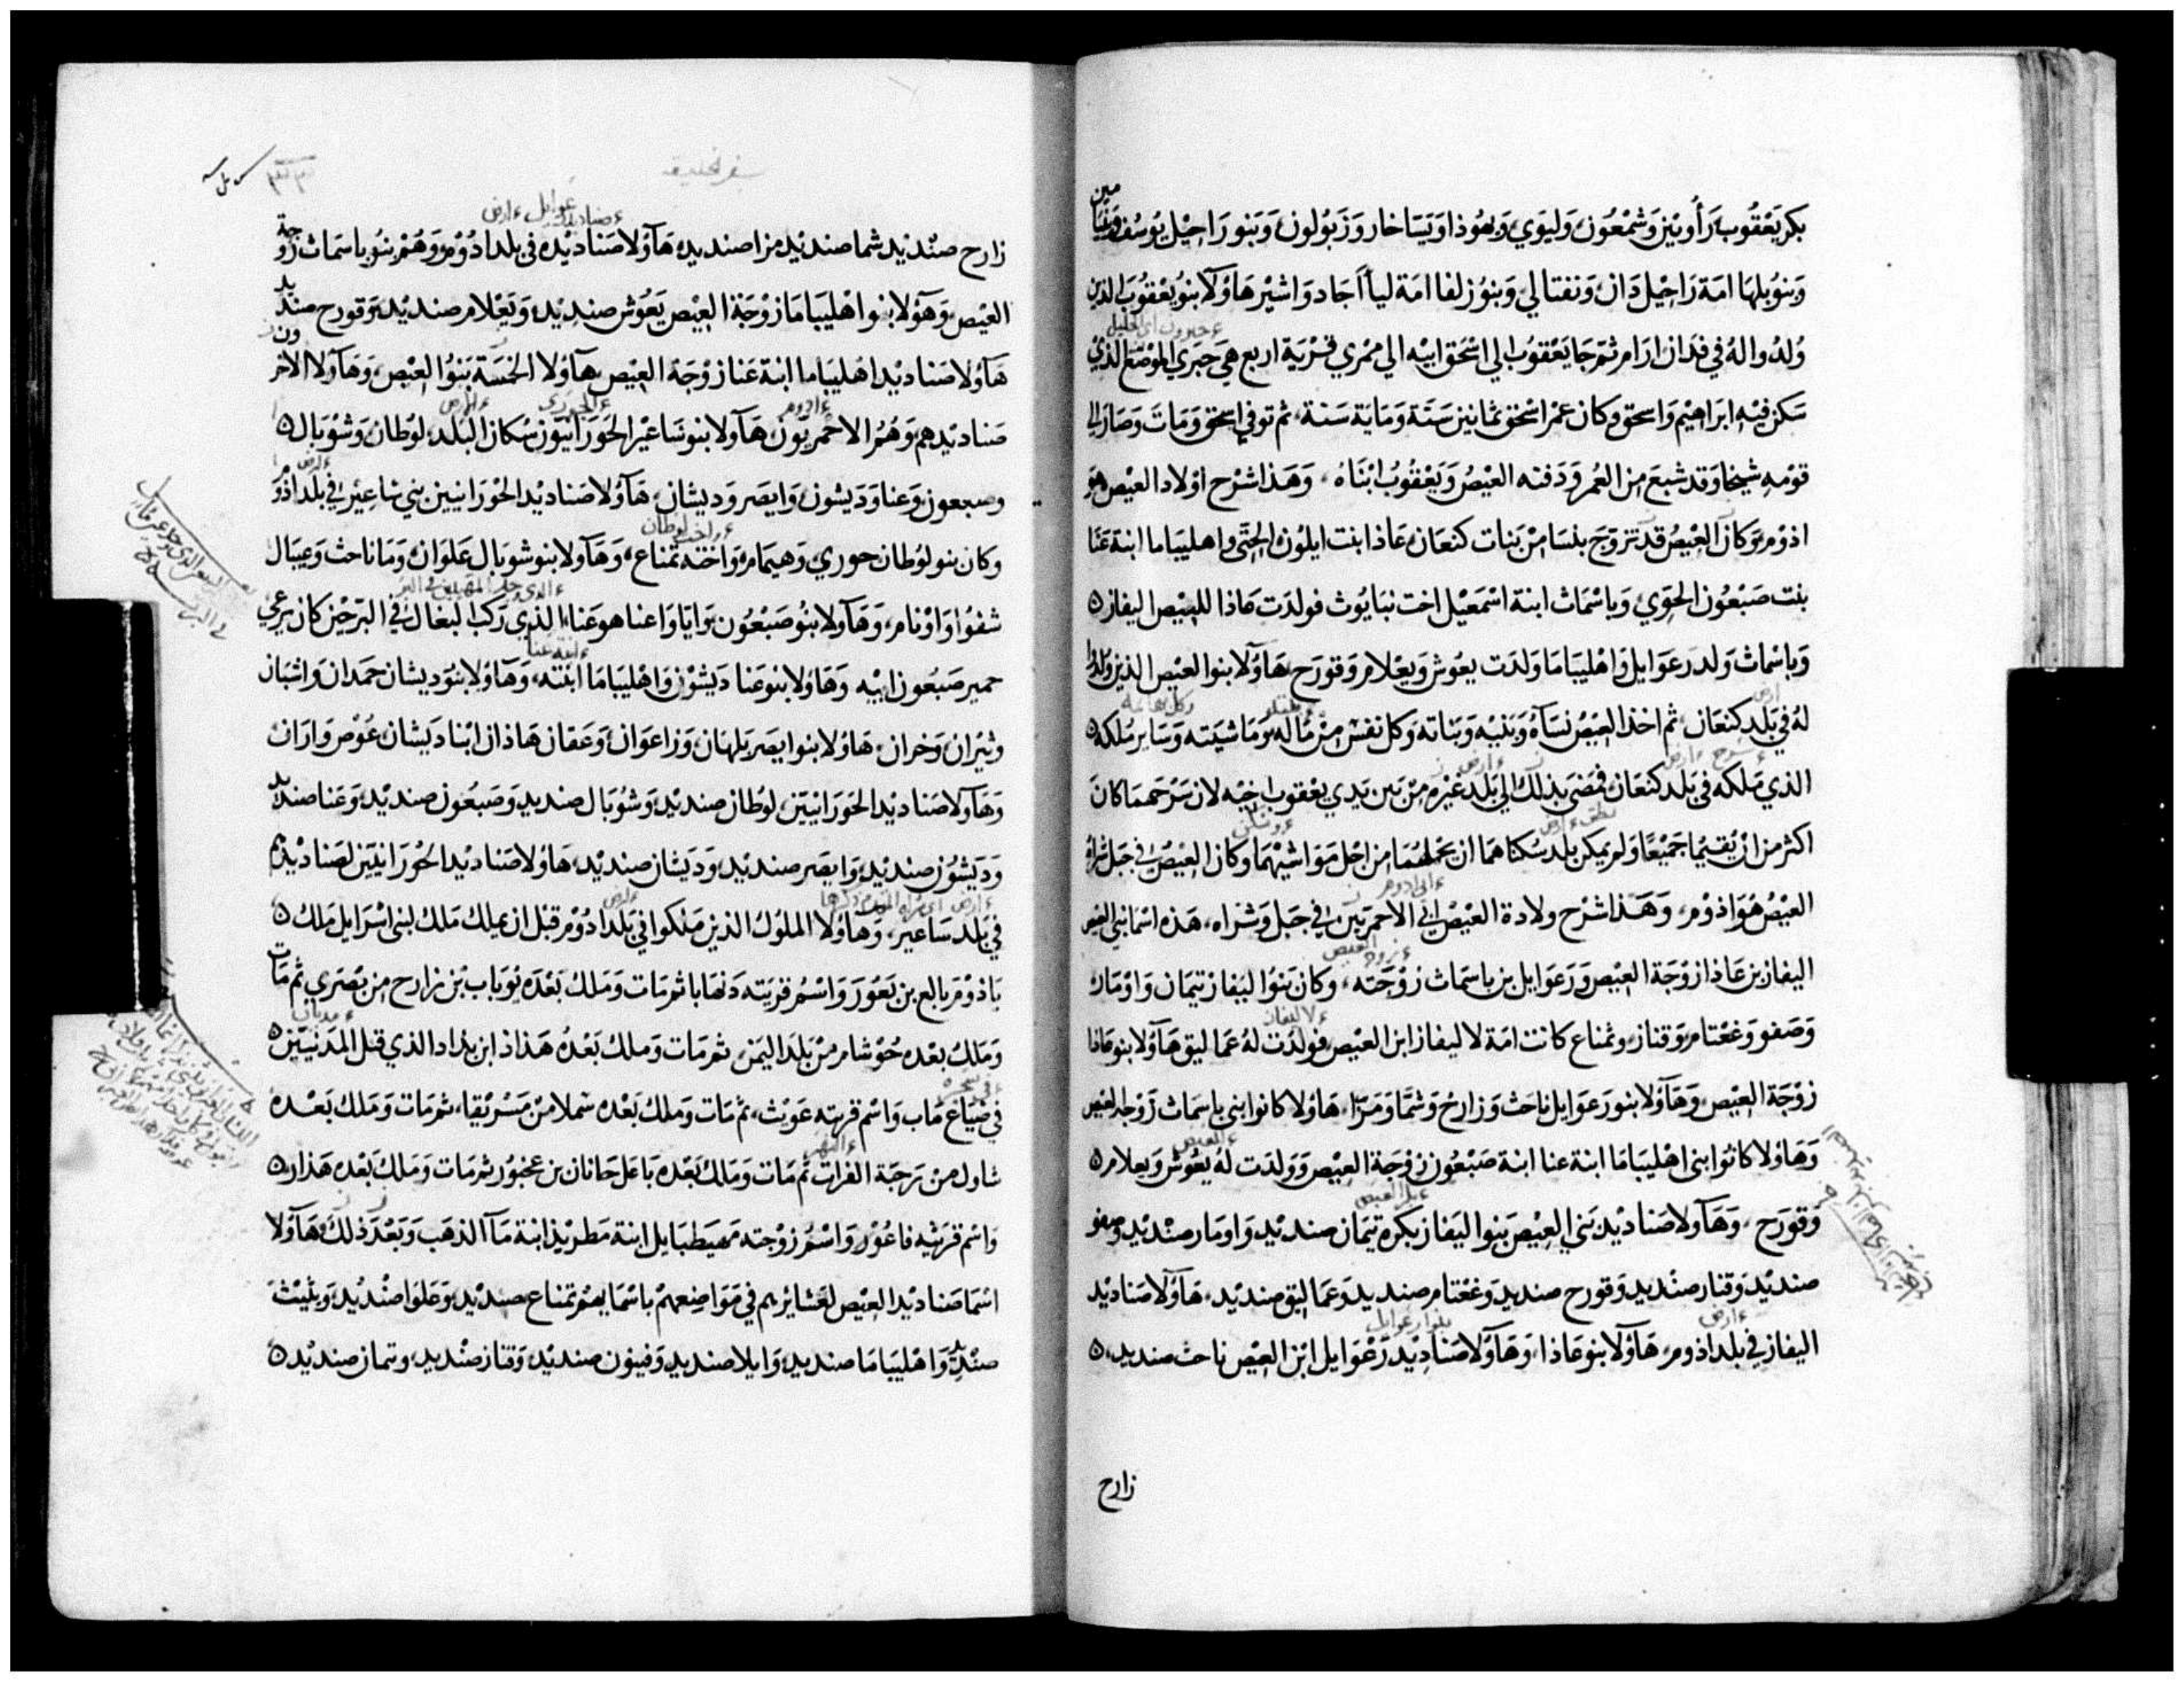 بكر يعقوب رأوبين وشمعون وليوي ويهوذا ويساخار وزبولون وبنو راحيل يوسف وبنيامين
وبنو بلها امة راحيل دان ونفتالي وبنو زلفا امة ليا اجاد واشير هاولا بنو يعقوب الذين
ولدوا له في فدان ارام ثم جا يعقوب الي اسحق ابيه الي ممري قرية اربع هي حبري الموضع الذي
سكن فيه ابراهيم واسحق وكان عمر اسحق ثمانين سنة وماية سنة ثم توفي اسحق ومات وصار الي
قومه شيخا وقد شبع من العمر ودفنه العيص ويعقوب ابناه وهذا شرح اولاد العيص هو
اذوم وكان العيص قد تزوج بنسا من بنات كنعان عاذا بنت ايلون الحتي واهليباما ابنة عنا
بنت صبعون الحوي وباسماث ابنة اسمعيل اخت نبايوث فولدت عاذا للعيص اليفاز
وباسماث ولدت رعوايل واهليباما ولدت يعوش ويعلام وقورح هاولا بنوا العيص الذين ولدوا
له في بلد كنعان ثم اخذ العيص نساه وبنيه وبناته وكل نفس من ماله وماشيته وساير ملكه
الذي ملكه في بلد كنعان فمضى بذلك الي بلد غيره من بين يدي يعقوب اخيه لان سرحهما كان
اكثر من ان يقيما جميعا ولم يمكن بلد سكناهما ان يحملهما من اجل مواشيهما وكان العيص في جبل شراه
العيص هو اذوم وهذا شرح ولادة العيص ابي الاحمريين في جبل وشراه هذه اسما بني العيص
اليفاز بن عاذا زوجة العيص ورعوايل بن باسماث زوجته وكان بنوا ليفاز تيمان واومار
وصفو وغعتام وقناز وتمناع كانت امة لاليفاز ابن العيص فولدت له عماليق هاولا بنو عاذا
زوجة العيص وهاولا بنو رعوايل ناحث وزارح وشما ومزا هاولا كانوا بني باسماث زوجة العيص
وهاولا كانوا بني اهليباما ابنة عنا ابنة صبعون زوجة العيص وولدت له يعوش ويعلام
وقورح وهاولا صناديد بني العيص بنوا اليفاز بكره تيمان صنديد واومار صنديد وصفو
صنديد وقنار صنديد وقورح صنديد وغعتام صنديد وعماليق صنديد هاولا صناديد
اليفاز في بلد اذوم هاولا بنو عاذا وهاولا صناديد رعوايل ابن العيص ناحث صنديد
زارح
سفر الخليقه
زارح صنديد شما صنديد مزا صنديد هاولا صناديده في بلد ادوم وهم بنو باسماث زوجة
العيص وهولا بنوا اهليباما زوجة العيص يعوش صنديد ويعلام صنديد وقورح صنديد
هاولا صناديد اهليباما ابنة عنا زوجة العيص هاولا الخمسة بنوا العيص وهاولا الاخرون
صناديدهم وهم الاحمريون هاولا بنو ساعير الحورانيون سكان البلد لوطان وشوبال
وصبعون وعنا وديشون وايصر وديشان هاولا صناديد الحورانيين بني ساعير في بلد اذوم
وكان بنو لوطان حوري وهيمام واخته تمناع وهاولا بنو شوبال علوان وماناحث وعيبال
شفوا واونام وهاولا بنو صبعون وايا واعنا هو عنا الذي ركب البغال في البر حين كان يرعي
حمير صبعون ابيه وهاولا بنو عنا ديشون واهليباما ابنته وهاولا بنو ديشان حمدان واشبان
وثيران وخران هاولا بنوا يصر بلهان وزاعوان وعقان هاذان ابنا ديشان عوص واران
وهاولا صناديد الحورانيين لوطان صنديد وشوبال صنديد وصبعون صنديد وعنا صنديد
وديشون صنديد وايصر صنديد وديشان صنديد هاولا صناديد الحورانيين لصناديدهم
في بلد ساعير وهاولا الملوك الذين ملكوا في بلد ادوم قبل ان يملك ملك لبني اسرايل ملك
باذوم بالع بن بعور واسم قريته دنهابا ثم مات وملك بعده يوباب بن زارح من بصري ثم مات
وملك بعده حوشام من بلد اليمن ثم مات وملك بعده هذاذ ابن بداد الذي قتل المدنيين
في ضياع ماب واسم قريته عويث ثم مات وملك بعده سملا من مسريقا ثم مات وملك بعده
شاول من رحبة الفرات ثم مات وملك بعده باعل حانان بن عخبور ثم مات وملك بعده هذار
واسم قريته فاعو واسم زوجته مهيطبايل ابنة مطريذ ابنة ما الذهب وبعد ذلك هاولا
اسما صناديد العيص لعشايرهم في مواضعهم باسمايهم تمناع صنديد وعلوا صنديد ويثيث
صنديد واهليباما صنديد وايلا صنديد وفينون صنديد وقناز صنديد وتمان صنديد